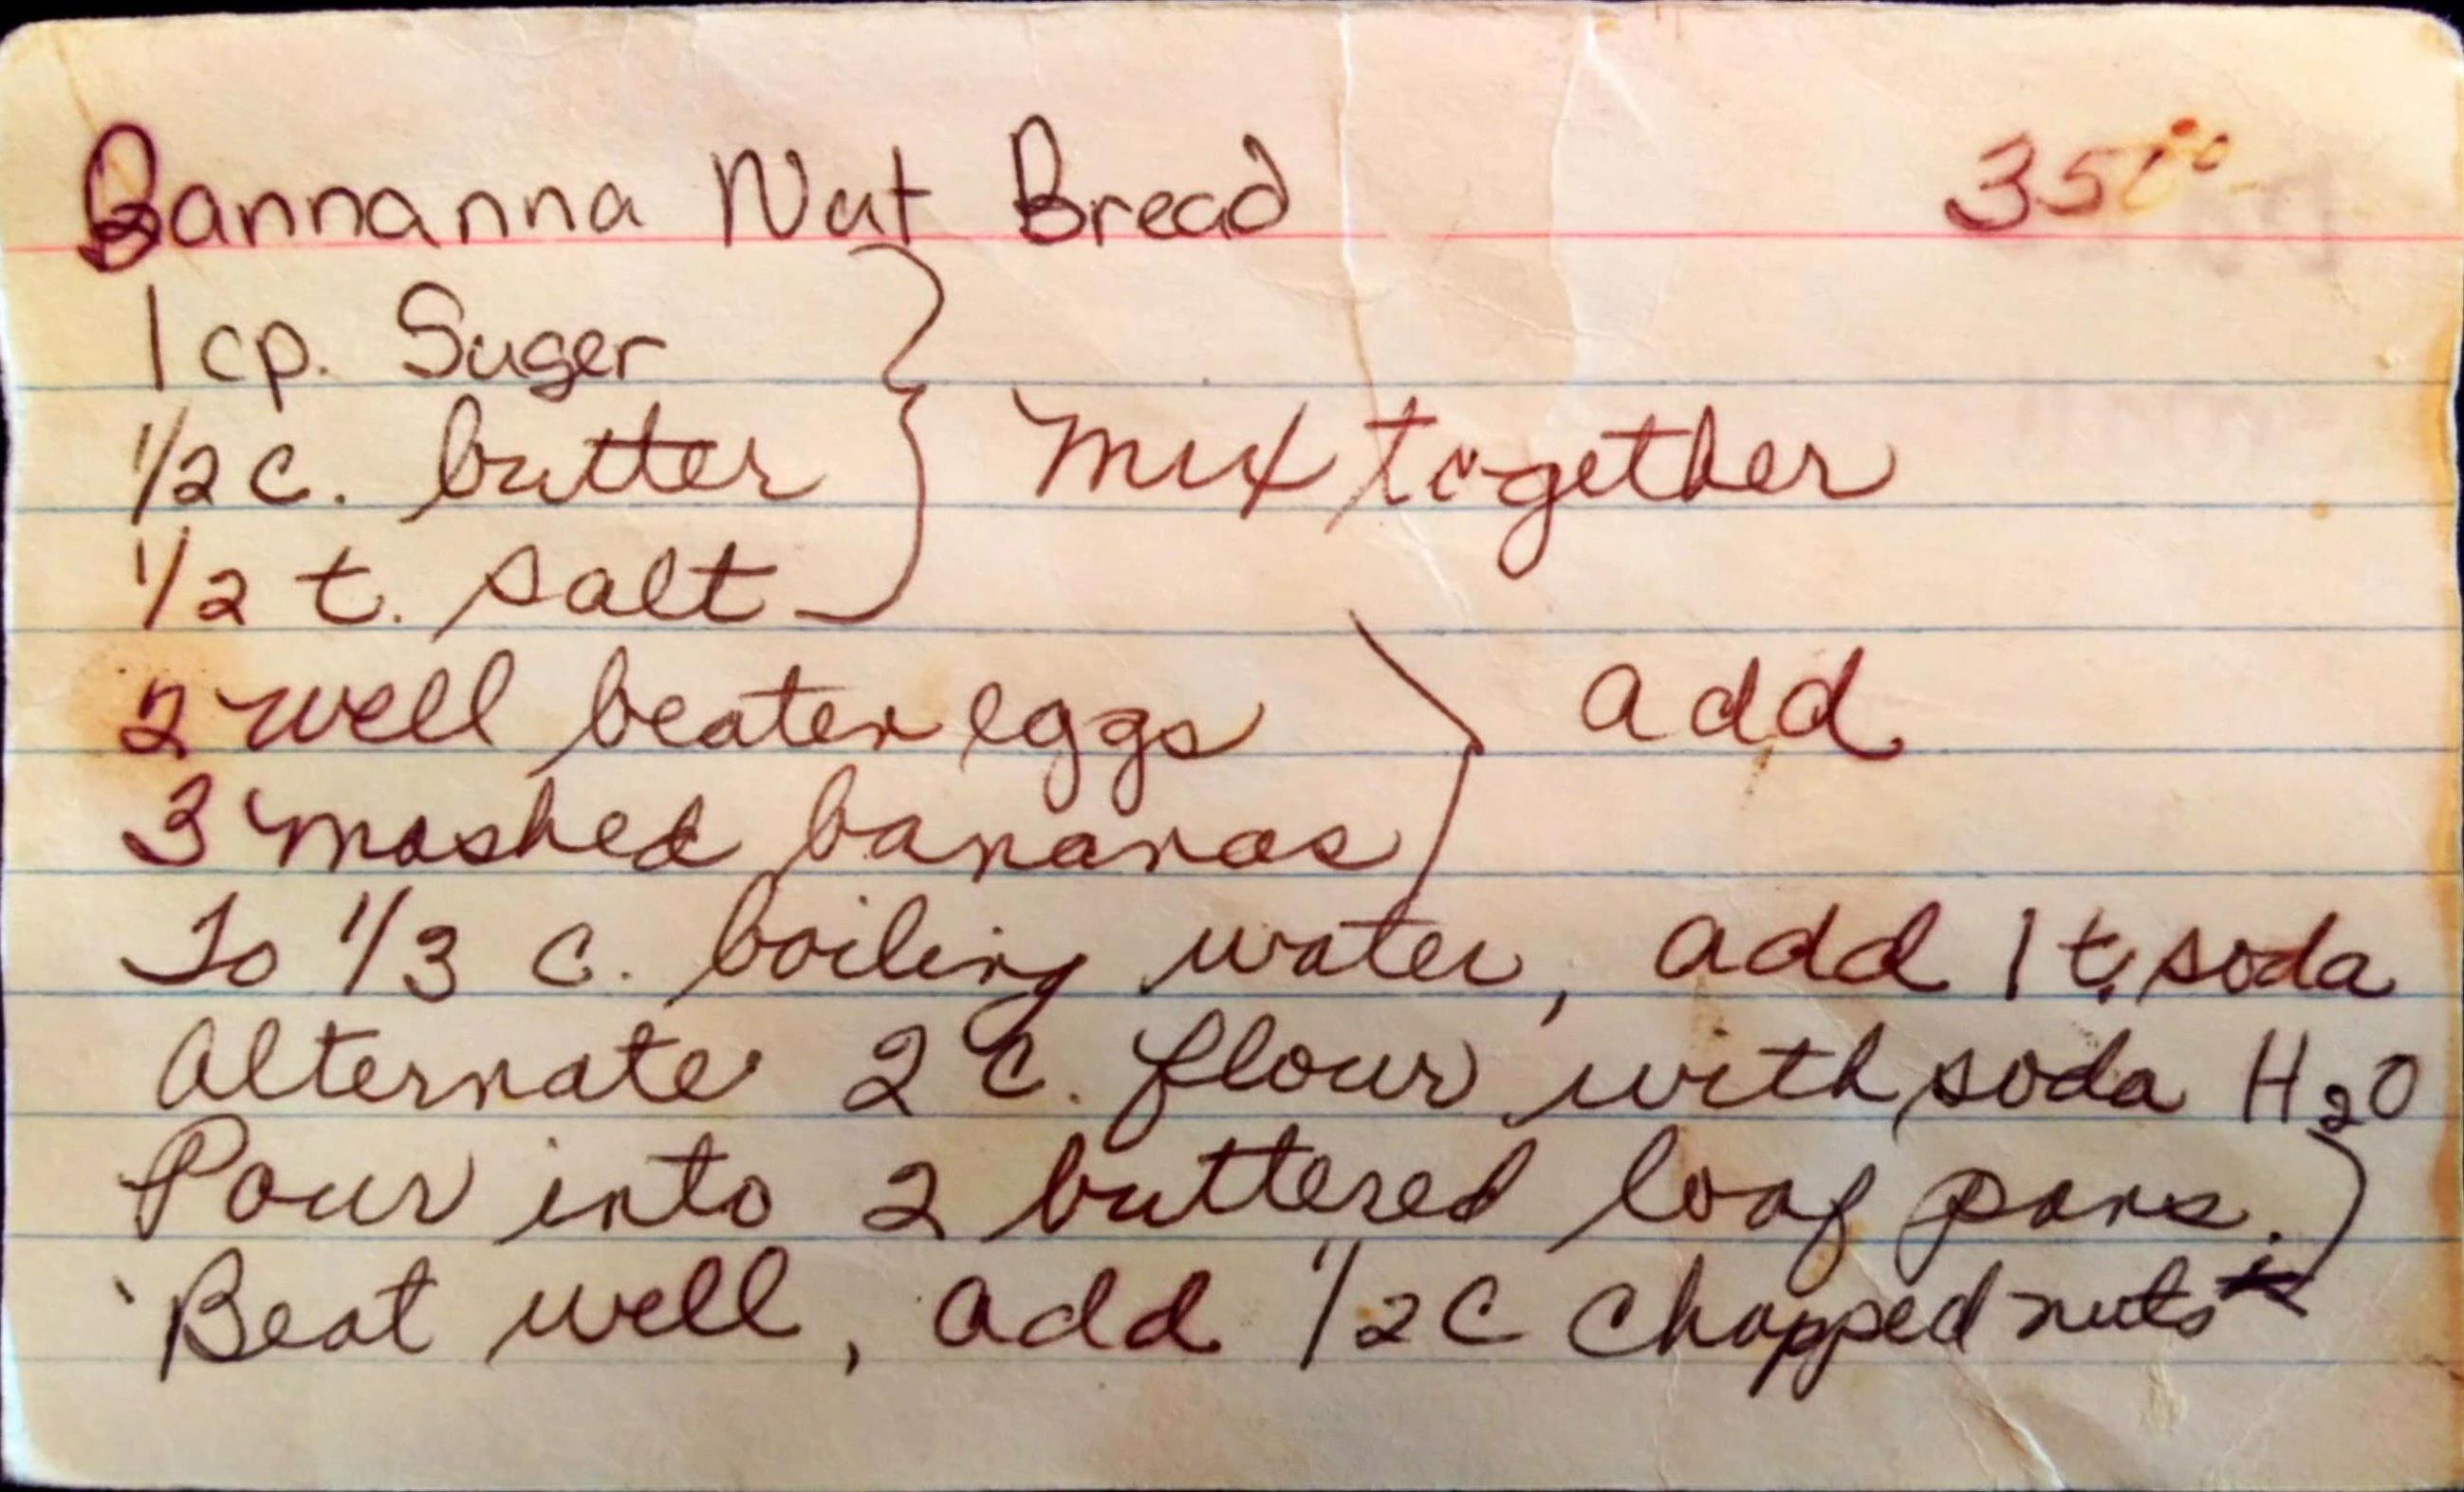 Bannanna Nut Bread 350°
1 cp. Suger
1/2 c. butter
1/2 t. salt
Mix together
2 well beaten eggs
3 mashed bananas
add
To 1/3 c. boiling water, add 1 t. soda
Alternate 2 c. flour with soda H2O
Pour into 2 buttered loaf pans.
Beat well, add 1/2 C chopped nuts